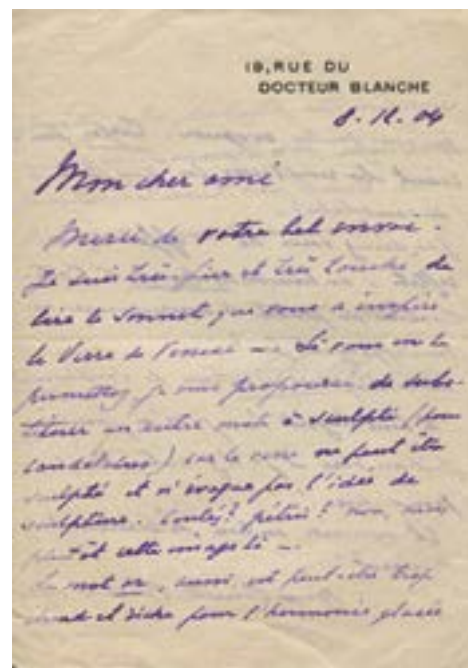 19, RUE DU
DOCTEUR BLANCHE
8-12-04
Mon cher ami
Merci de votre bel envoi.
Je suis très fier et très touché de
lire le sonnet que vous a inspiré
le Verre de Venise — Si vous me le
permettez, je vous proposerai de subs-
tituer un autre mot à sculpté (pour
), car le verre ne peut être
sculpté et n'évoque pas l'idée de
sculpture. Coulés? pétris? non, mais
plutôt cette image là —
Le mot or, aussi, est peut-être trop
chaud et riche pour l'harmonie glacée